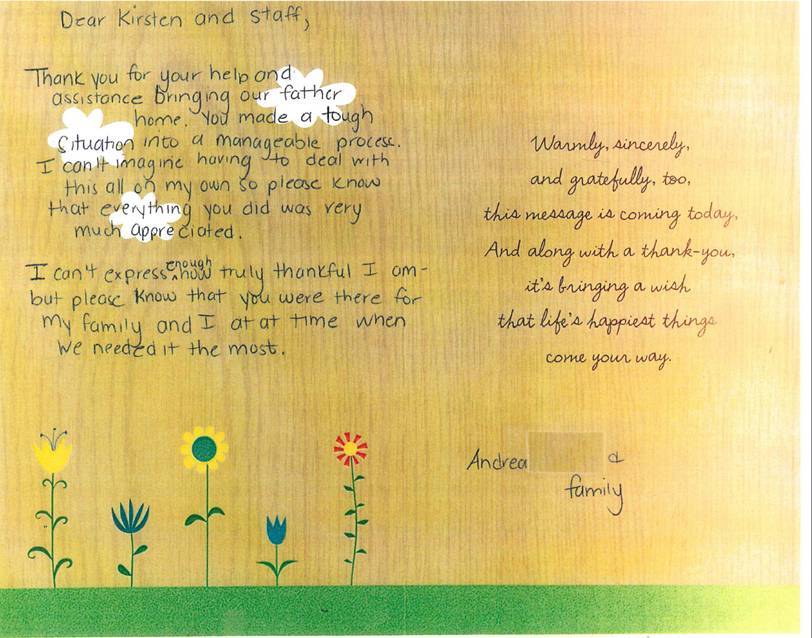 Dear Kirsten and staff,
Thank you for your help and
assistance bringing our father
home. You made a tough
situation into a manageable process.
I can't imagine having to deal with
this all on my own so please know
that everything you did was very
much appreciated.
I can't express enough how truly thankful I am-
but please know that you were there for
my family and I at at time when
we needed it the most.
Warmly, sincerely,
and gratefully, too,
this message is coming today,
And along with a thank-you,
it's bringing a wish
that life's happiest things
come your way.
Andrea &
family